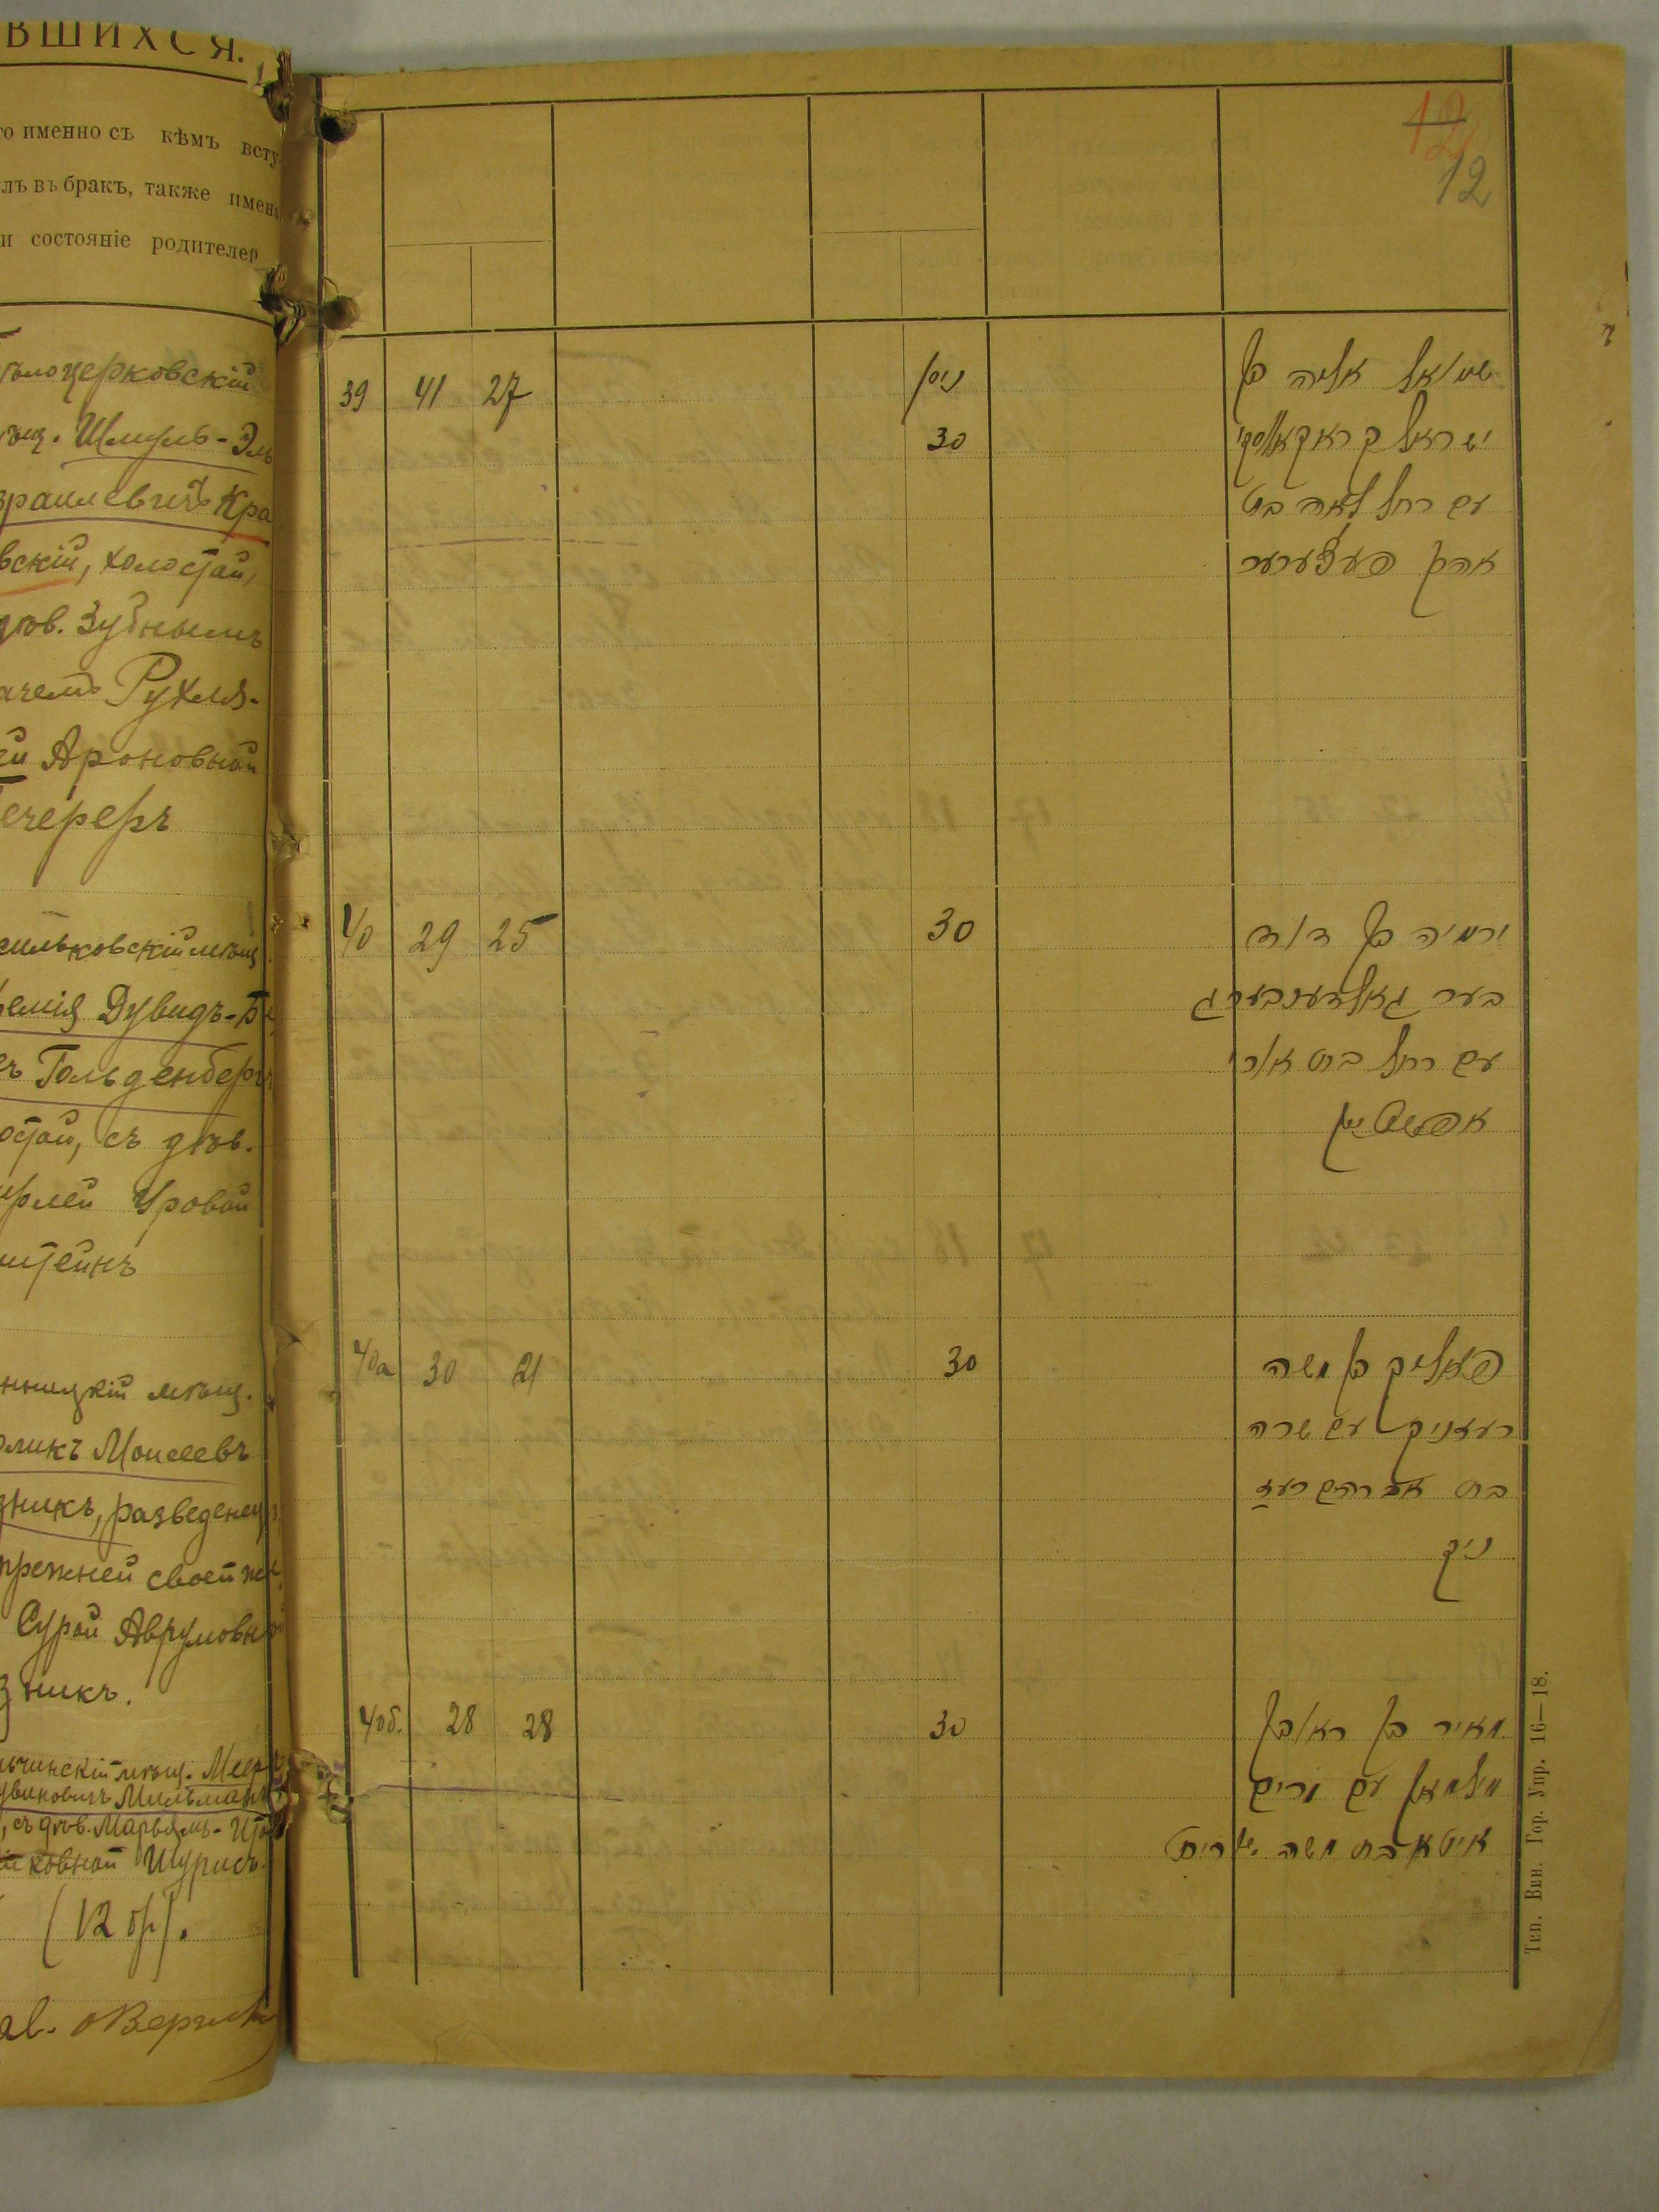 ВШИХСЯ.
го именно съ кѣмъ всту
лъ въ бракъ, также имена
и состояніе родителей
церковскій
Шмуль-Эль
зраилевичъ Кра
вскій, холостой,
дѣв. Зубнымъ
ачемъ Рухля-
ей Ароновной
ечереръ
сильковскій мѣщ.
емія Дувидъ-Бе
ъ Гольденбергъ
остой, съ дѣв.
Уровой
штейнъ
нницкій мѣщ.
оликъ Моисеевъ
зникъ, разведенец
прежней своей же
Сурой Аврумовной
зникъ.
ьчинскій мѣщ. Меер
увиновичъ Мильман
, съ дѣв. Марьямъ-Ит
ковной Шурисъ.
(12 бр).
12
12
39 41 27 ניסן שמואל אליה בן
30 ישראל קראקאווסקי
עם רחל לאה בת
אהרן פעצערער
40 29 25 30 ירמיה בן דוד
בער גאלדענבערג
עם רחל בת אורי
אפשטיין
40а 30 21 30 פאליק בן משה
רעזניק עם שרה
בת אברהם רעז
ניק
40б. 28 28 30 מאיר בן ראובן
מילמאן עם מרים
איטא בת משה שוריס
Тип. Вин. Гор. Упр. 16—18.